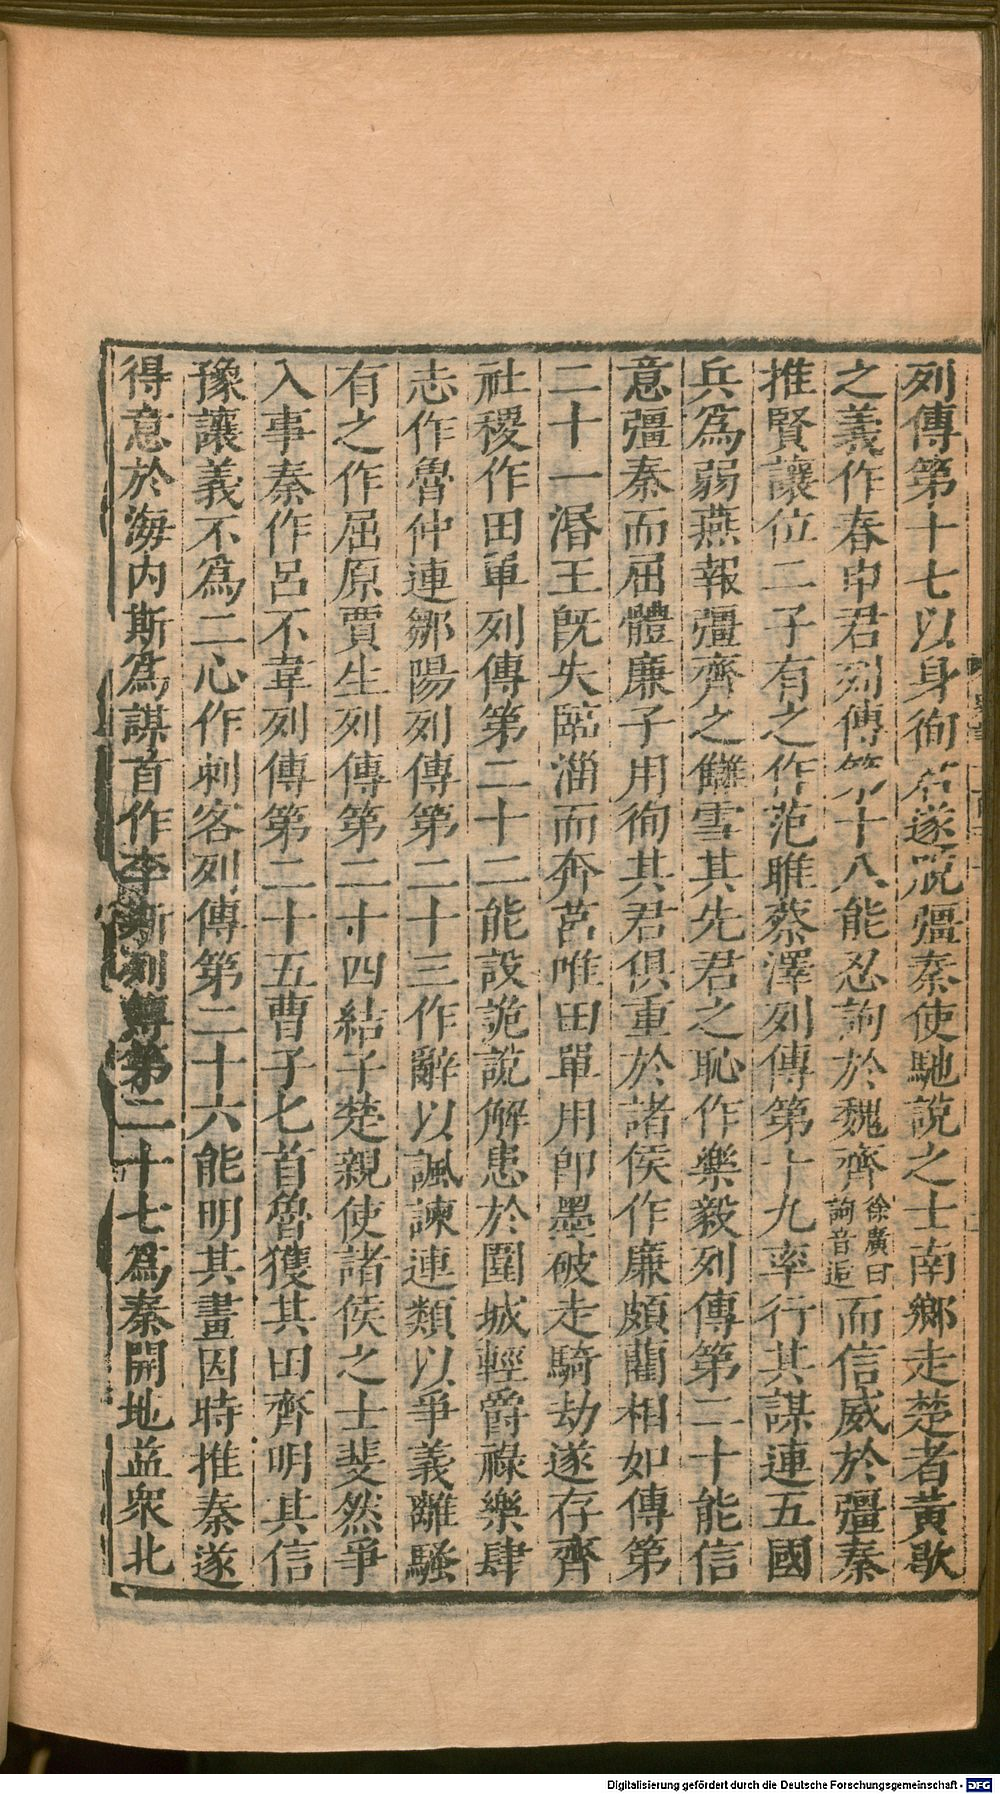 列傳第十七以身徇君遂脫彊秦使馳說之士南鄉走楚者黃歇
之義作春申君列傳第十八能忍訽於魏齊徐廣曰訽音逅而信威於彊秦
推賢讓位二子有之作范雎蔡澤列傳第十九率行其謀連五國
兵爲弱燕報彊齊之讎雪其先君之恥作樂毅列傳第二十能信
意彊秦而屈體廉子用徇其君俱重於諸侯作廉頗藺相如傳第
二十一湣王既失臨淄而奔莒唯田單用卽墨破走騎劫遂存齊
社稷作田單列傳第二十二能設詭說解患於圍城輕爵祿樂肆
志作魯仲連鄒陽列傳第二十三作辭以諷諫連類以爭義離騷
有之作屈原賈生列傳第二十四結子楚親使諸侯之士斐然爭
入事秦作呂不韋列傳第二十五曹子匕首魯獲其田齊明其信
豫讓義不爲二心作刺客列傳第二十六能明其畫因時推秦遂
得意於海內斯爲謀首作李斯列傳第二十七爲秦開地益衆北
Digitalisierung gefördert durch die Deutsche Forschungsgemeinschaft - DFG